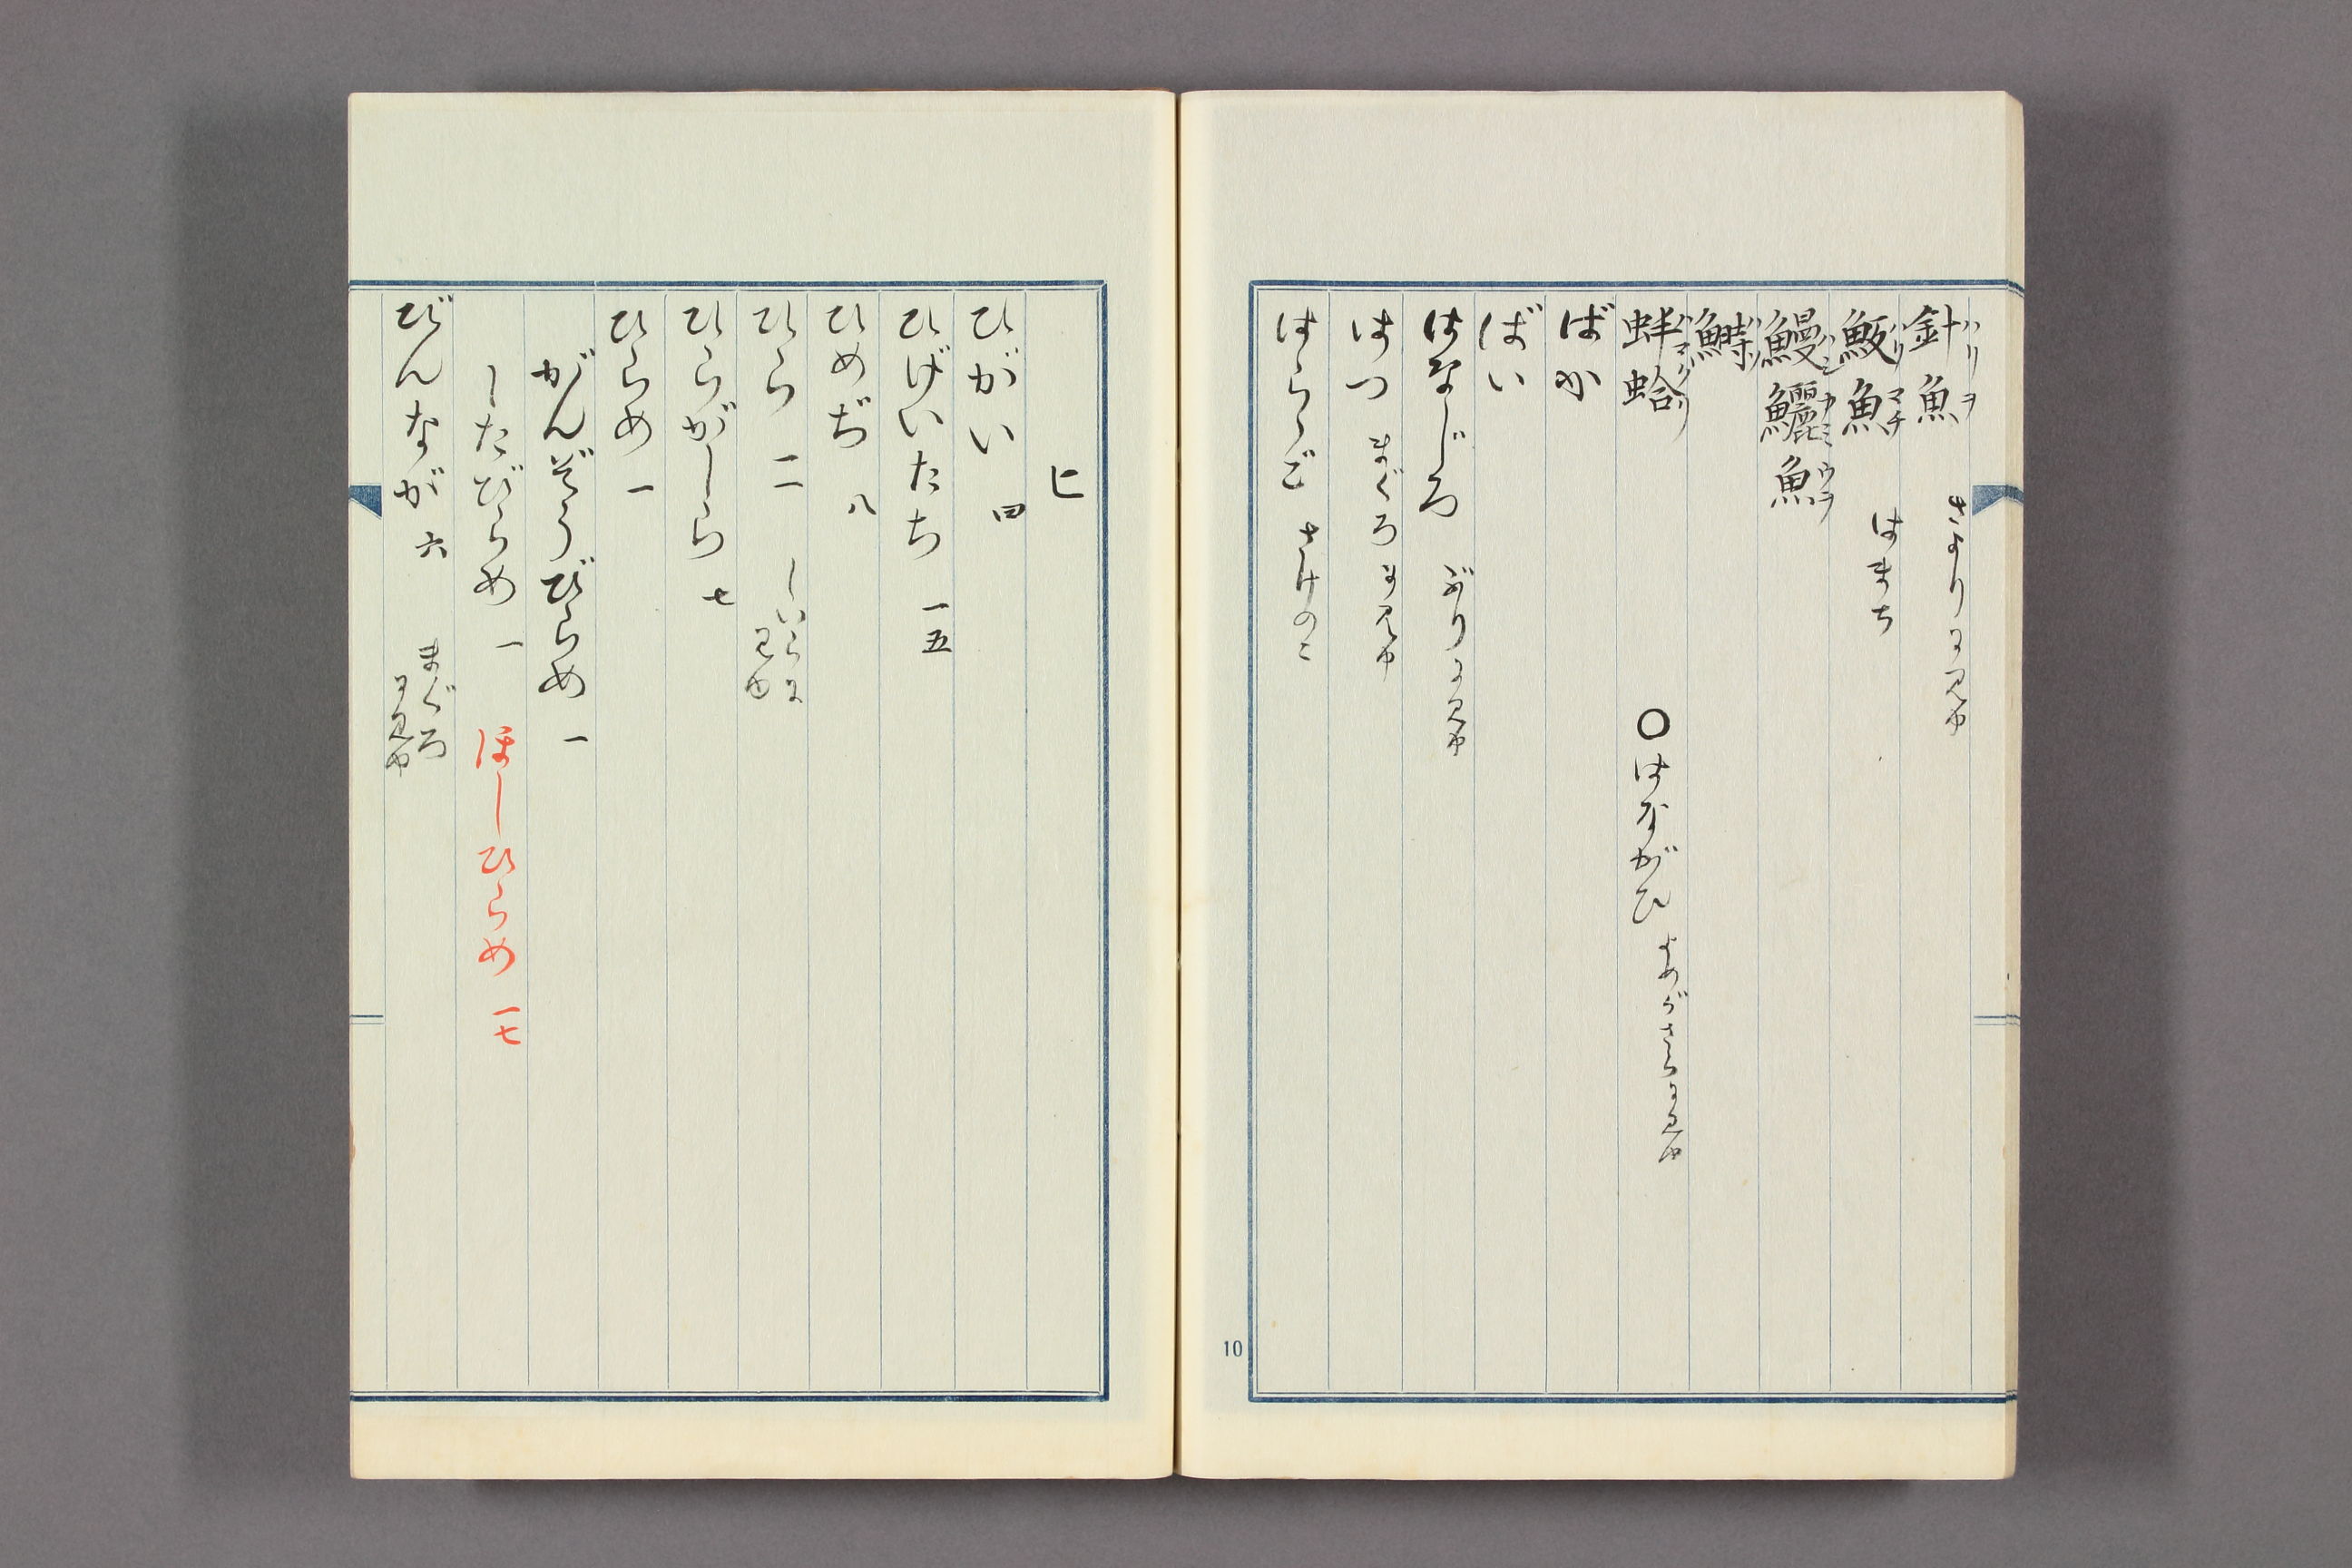 針魚 ハリヲ さよりに見ゆ
魬魚 ハリマチ はまち
鰻鱺魚 ハンカミウヲ
鰣
蚌蛤 ハマグリ ○はながひ よめがさらに見ゆ
ばか
ばい
はなじろ ぶりに見ゆ
はつ まぐろに見ゆ
はらゝご さけのこ
10
ヒ
ひがい 四
ひげいたち 一五
ひめぢ 八
ひら 一一 しいらに見ゆ
ひらがしら 七
ひらめ 一
がんぞうびらめ 一
したびらめ 一 ほしひらめ 一七
びんなが 六 まぐろに見ゆ